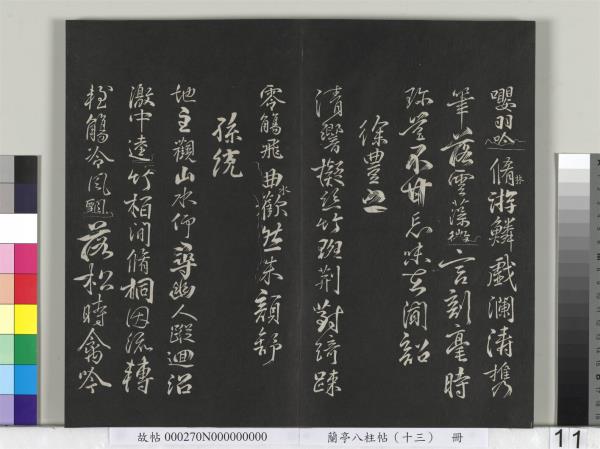 嚶羽吟脩竹游鱗戲瀾濤攜
筆落雲藻微言剖毫時
珍豈不甘忘味在聞韶
徐豐之
清響擬絲竹班荊對綺疎
零觴飛曲水歡然朱顏舒
孫統
地主觀山水仰尋幽人蹤迴沼
激中逵竹柏間脩桐因流轉
輕觴冷風飄落松時禽吟
故帖 000270N000000000
蘭亭八柱帖(十三) 冊
11